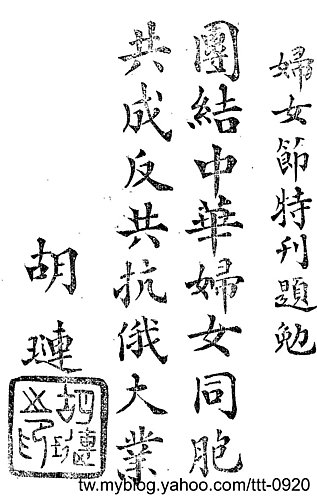 婦女節特刊題勉
團結中華婦女同胞
共成反共抗俄大業
胡璉
胡璉之印
tw.myblog.yahoo.com/ttt-0920